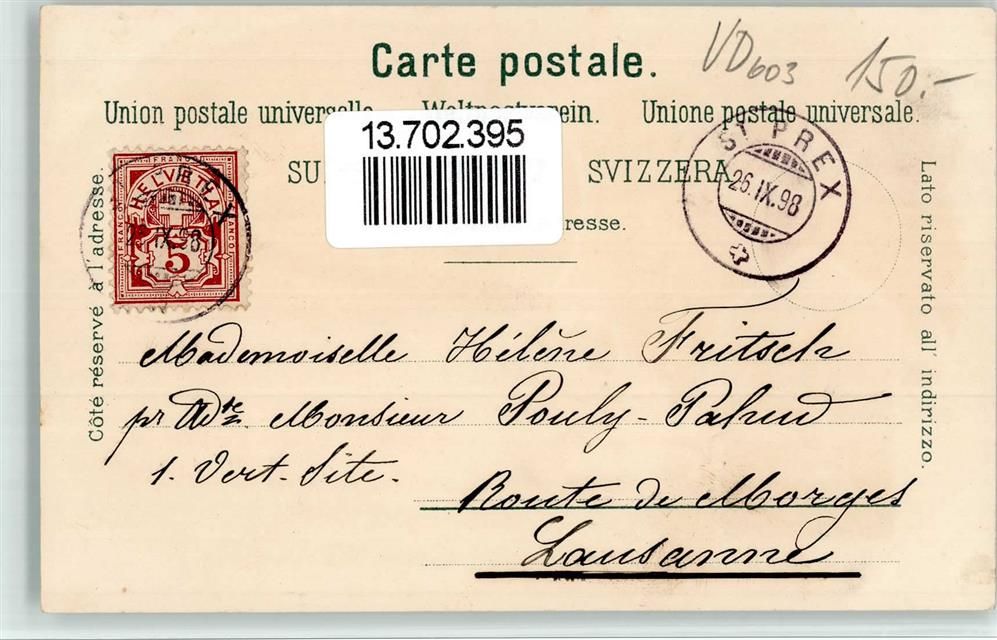 VD603 150.-
Carte postale.
Union postale universelle. Weltpostverein. Unione postale universale.
13.702.395
SU SVIZZERA
resse.
Côté réservé à l'adresse.
Lato riservato all' indirizzo.
FRANCO HELVETIA FRANCO FRANCO
5
IX.98 X
ST PREX
26.IX.98
Mademoiselle Hélène Fritsch
pr Adte. Monsieur Pouly-Pahud
1. Vert-Site.
Route de Morges
Lausanne